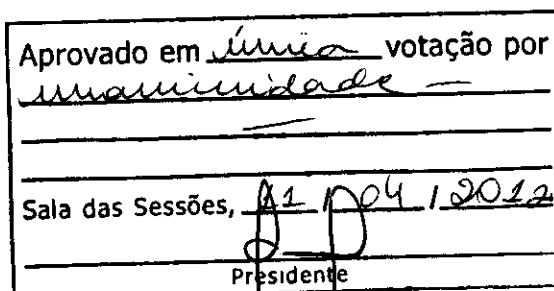 Aprovado em única votação por
unanimidade —
Sala das Sessões, 11 / 04 / 2012
Presidente